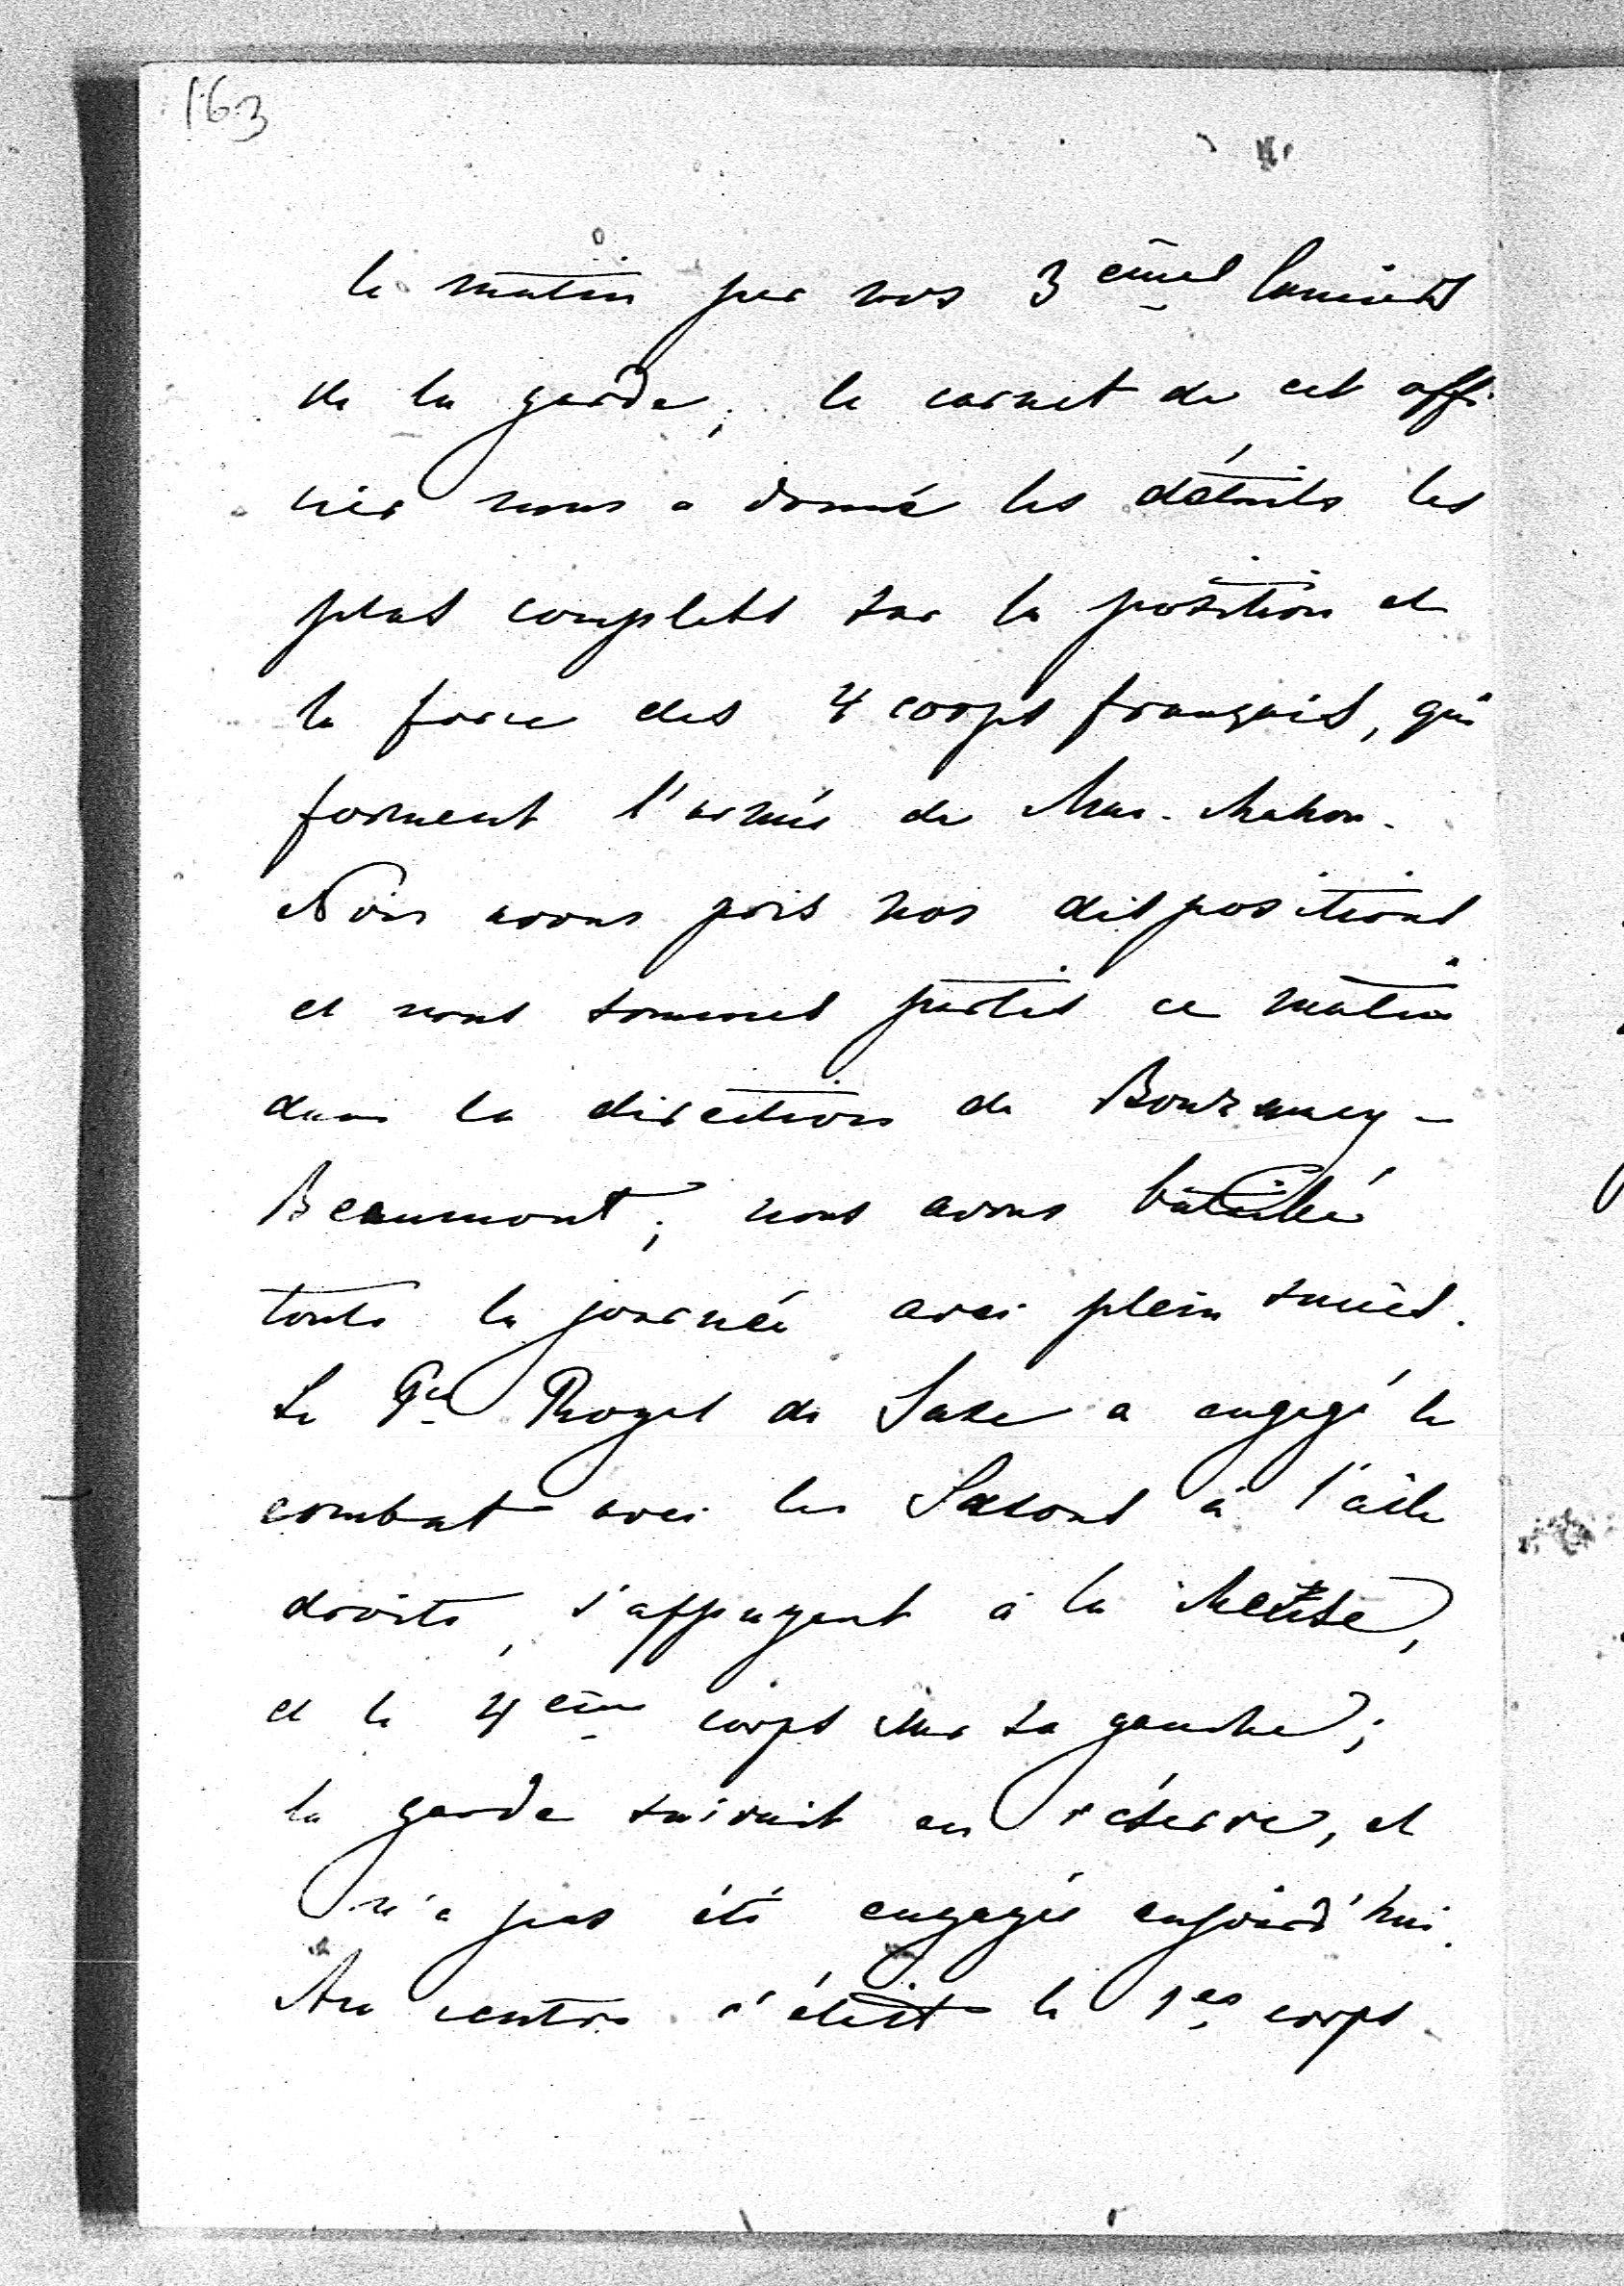 163
le matin par nos 3 èmes lanciers
de la garde; le carnet de cet offi
cier nous a donné les détails les
plus complets sur la position et
la force des 4 corps français, qui
forment l'armée de Mac-Mahon.
Nous avons pris nos dispositions
et nous sommes partis ce matin
dans la direction de
Beaumont; nous avons bataillé
toute la journée avec plein succès.
Le Pce Royal de Saxe a engagé le
combat avec les Saxons à l'aile
droite, s'appuyant à la Meuse,
et le 4 ème corps sur sa gauche;
la garde suivait en réserve, et
n'a pas été engagée aujourd'hui.
Au centre c'était le 1er corps